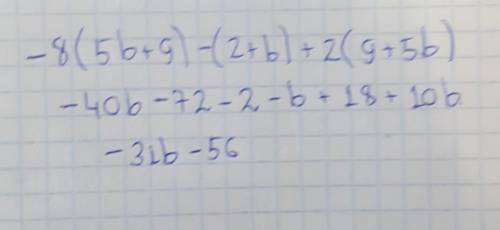 -8(5b+9)-(2+b)+2(9+5b)
-40b-72-2-b+18+10b
-31b-56